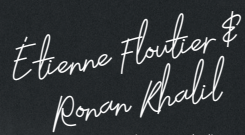 Étienne Floutier &
Ronan Khalil